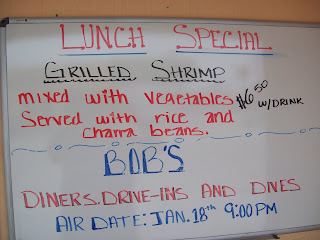 LUNCH SPECIAL
GRILLED SHRIMP
mixed with vegetables $6.50 w/DRINK
Served with rice and
charra beans.
BOB'S
DINERS.DRIVE-INS AND DIVES
AIR DATE: JAN. 18th 9:00PM